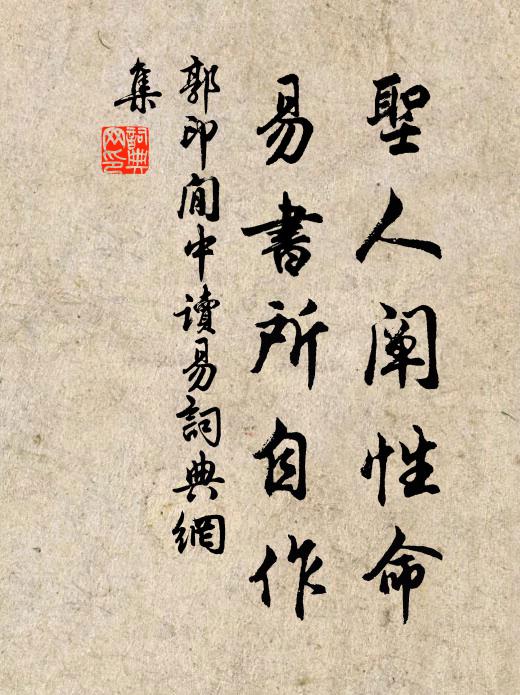 聖人阐性命
易書所自作
郭印閒中讀易詞典網
集
詞典网印